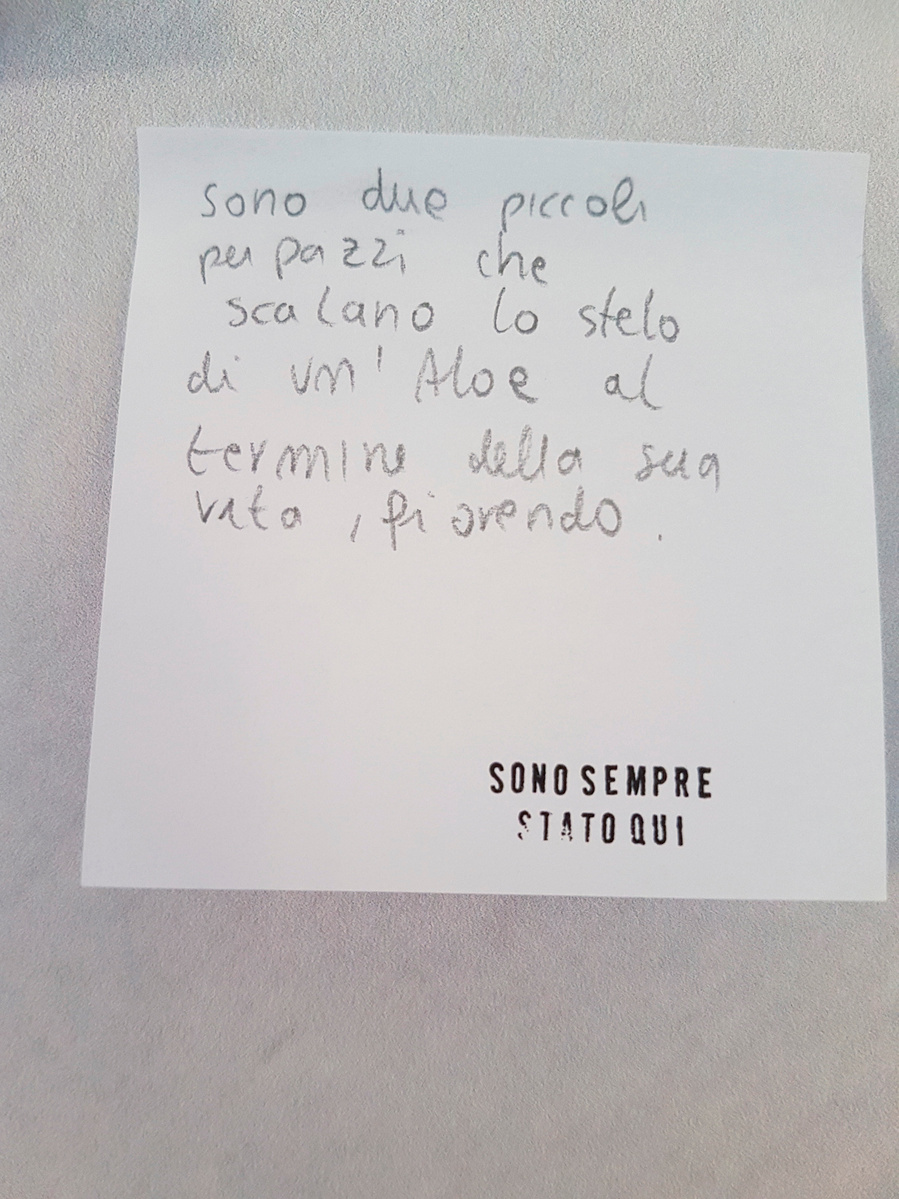 sono due piccoli
pupazzi che
scalano lo stelo
di un' Aloe al
termine della sua
vita, fiorendo.
SONO SEMPRE
STATO QUI